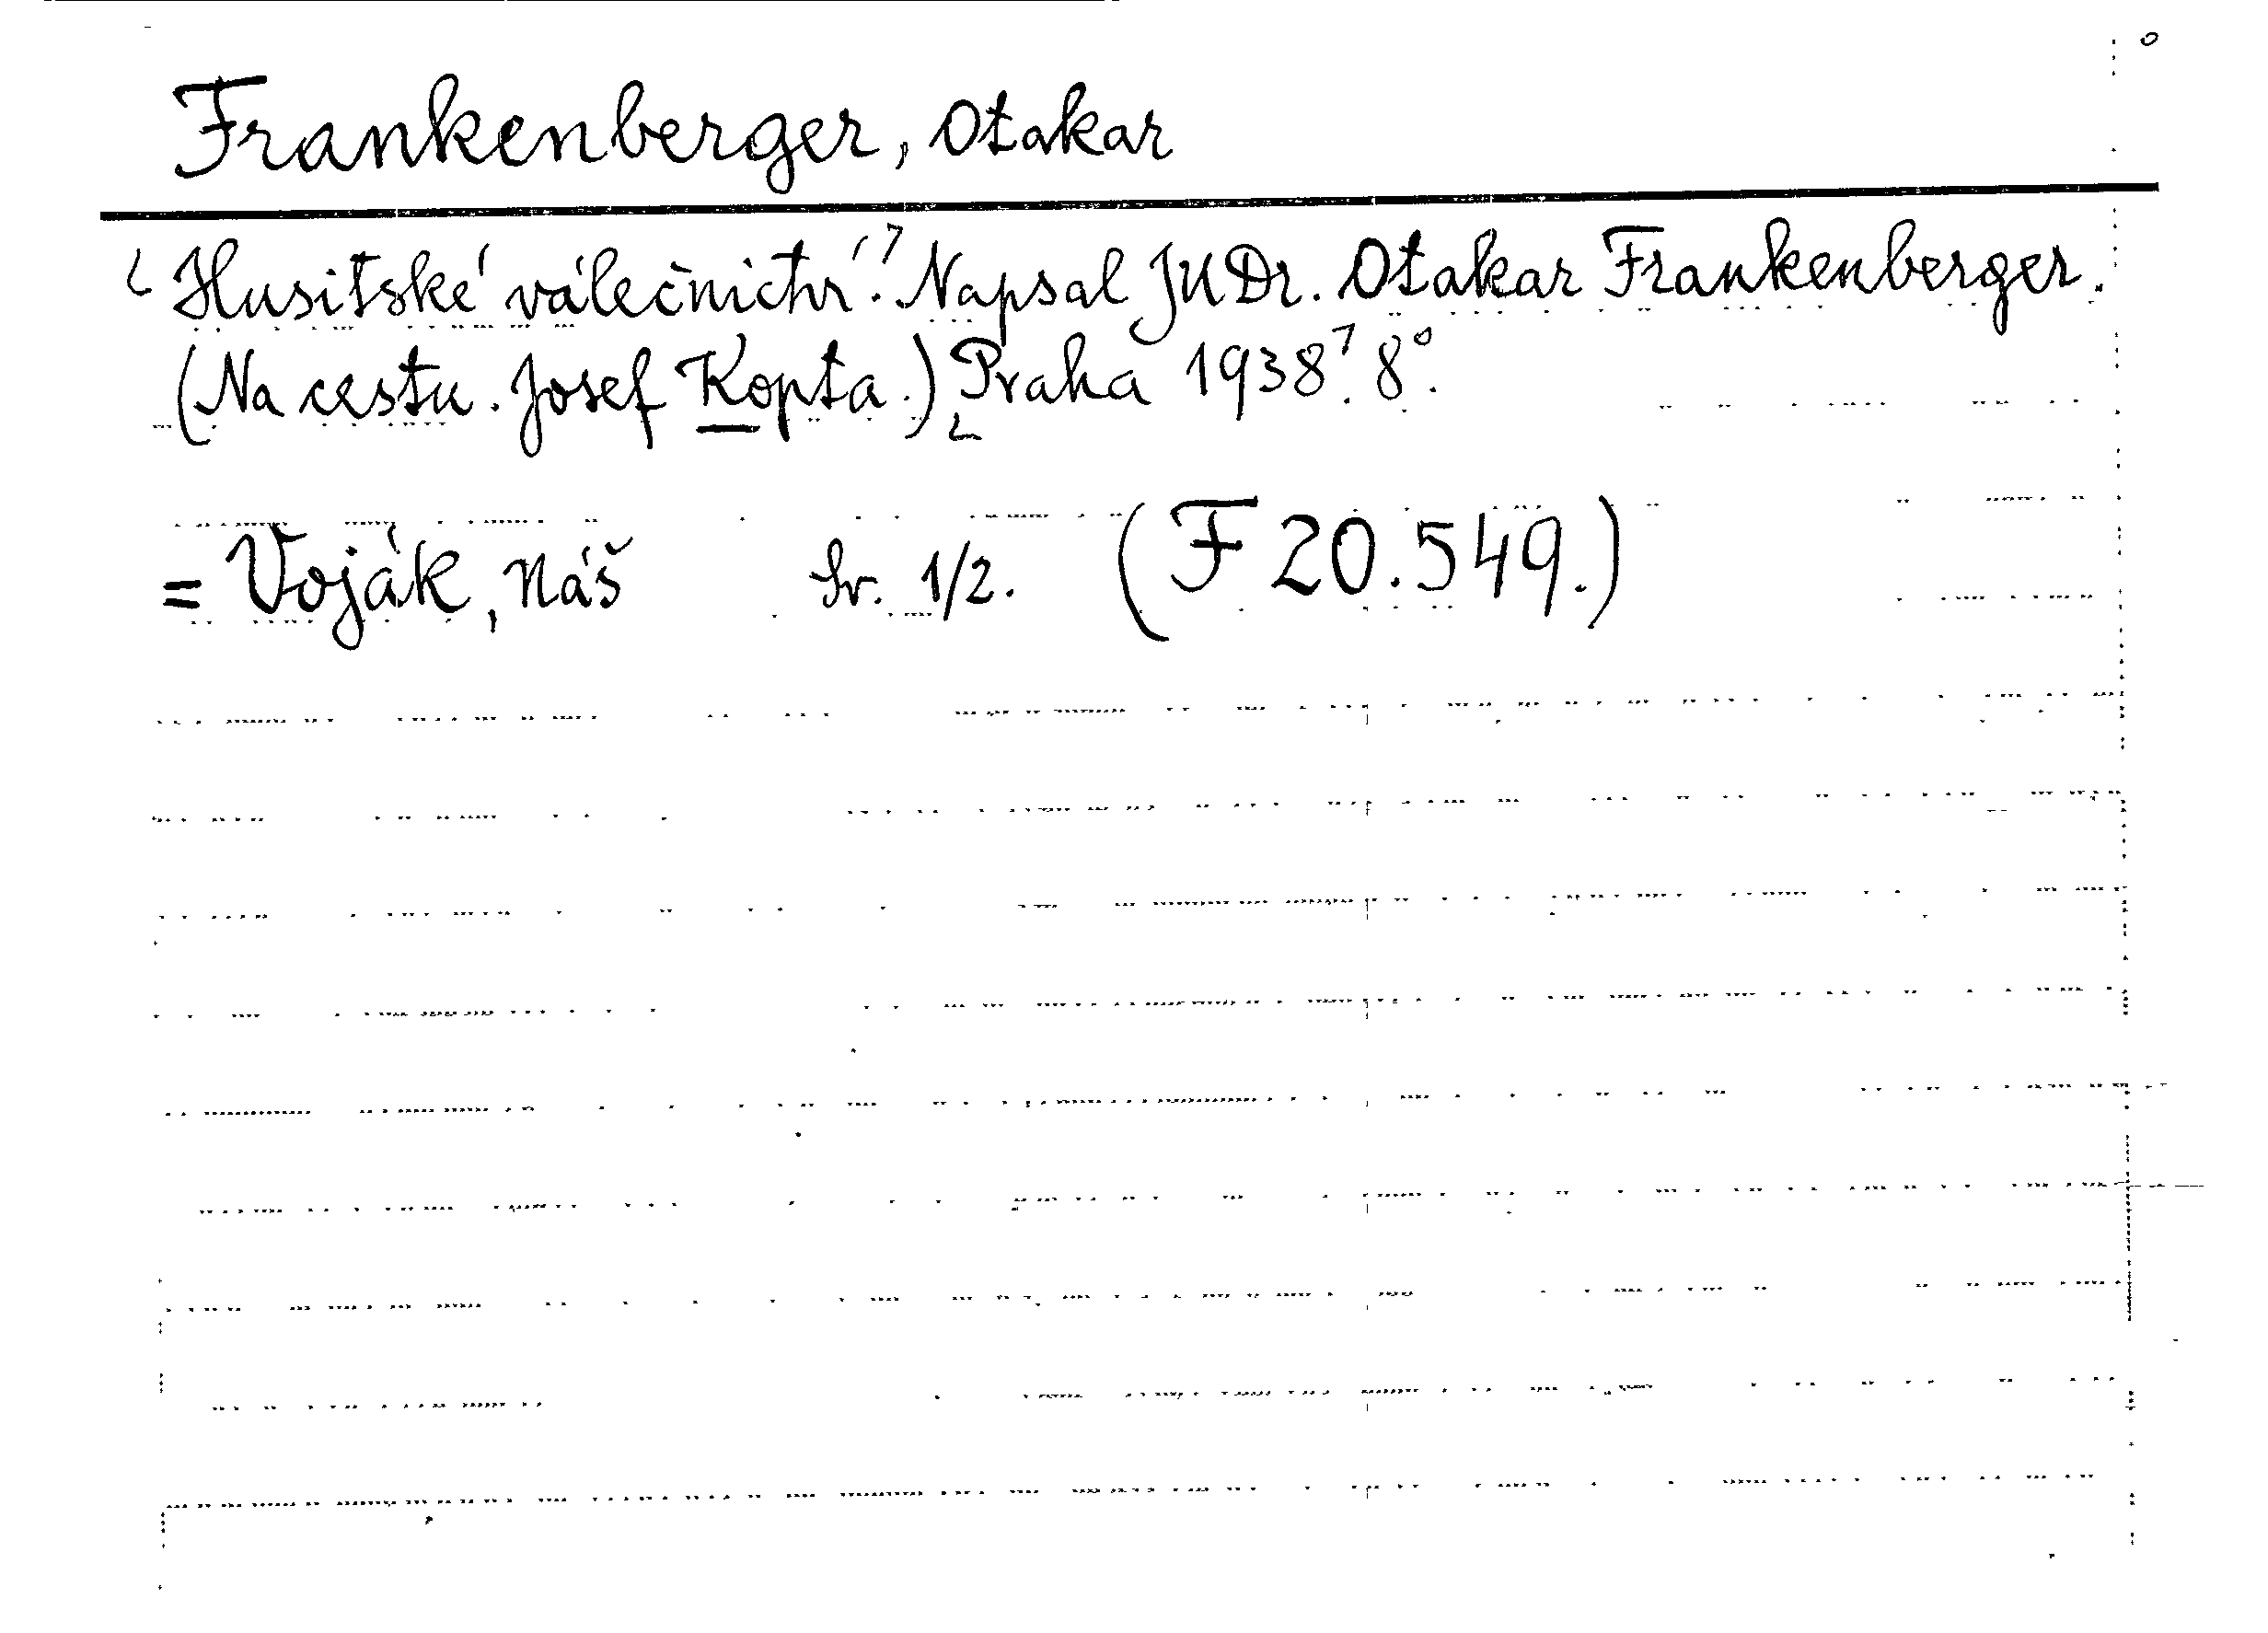 Frankenberger, Otakar
Husitské válečnictví. Napsal JUDr. Otakar Frankenberger.
(Na cestu. Josef Kopta.) Praha 1938. 8°.
= Voják, náš Sv. 1/2. (F 20.549.)